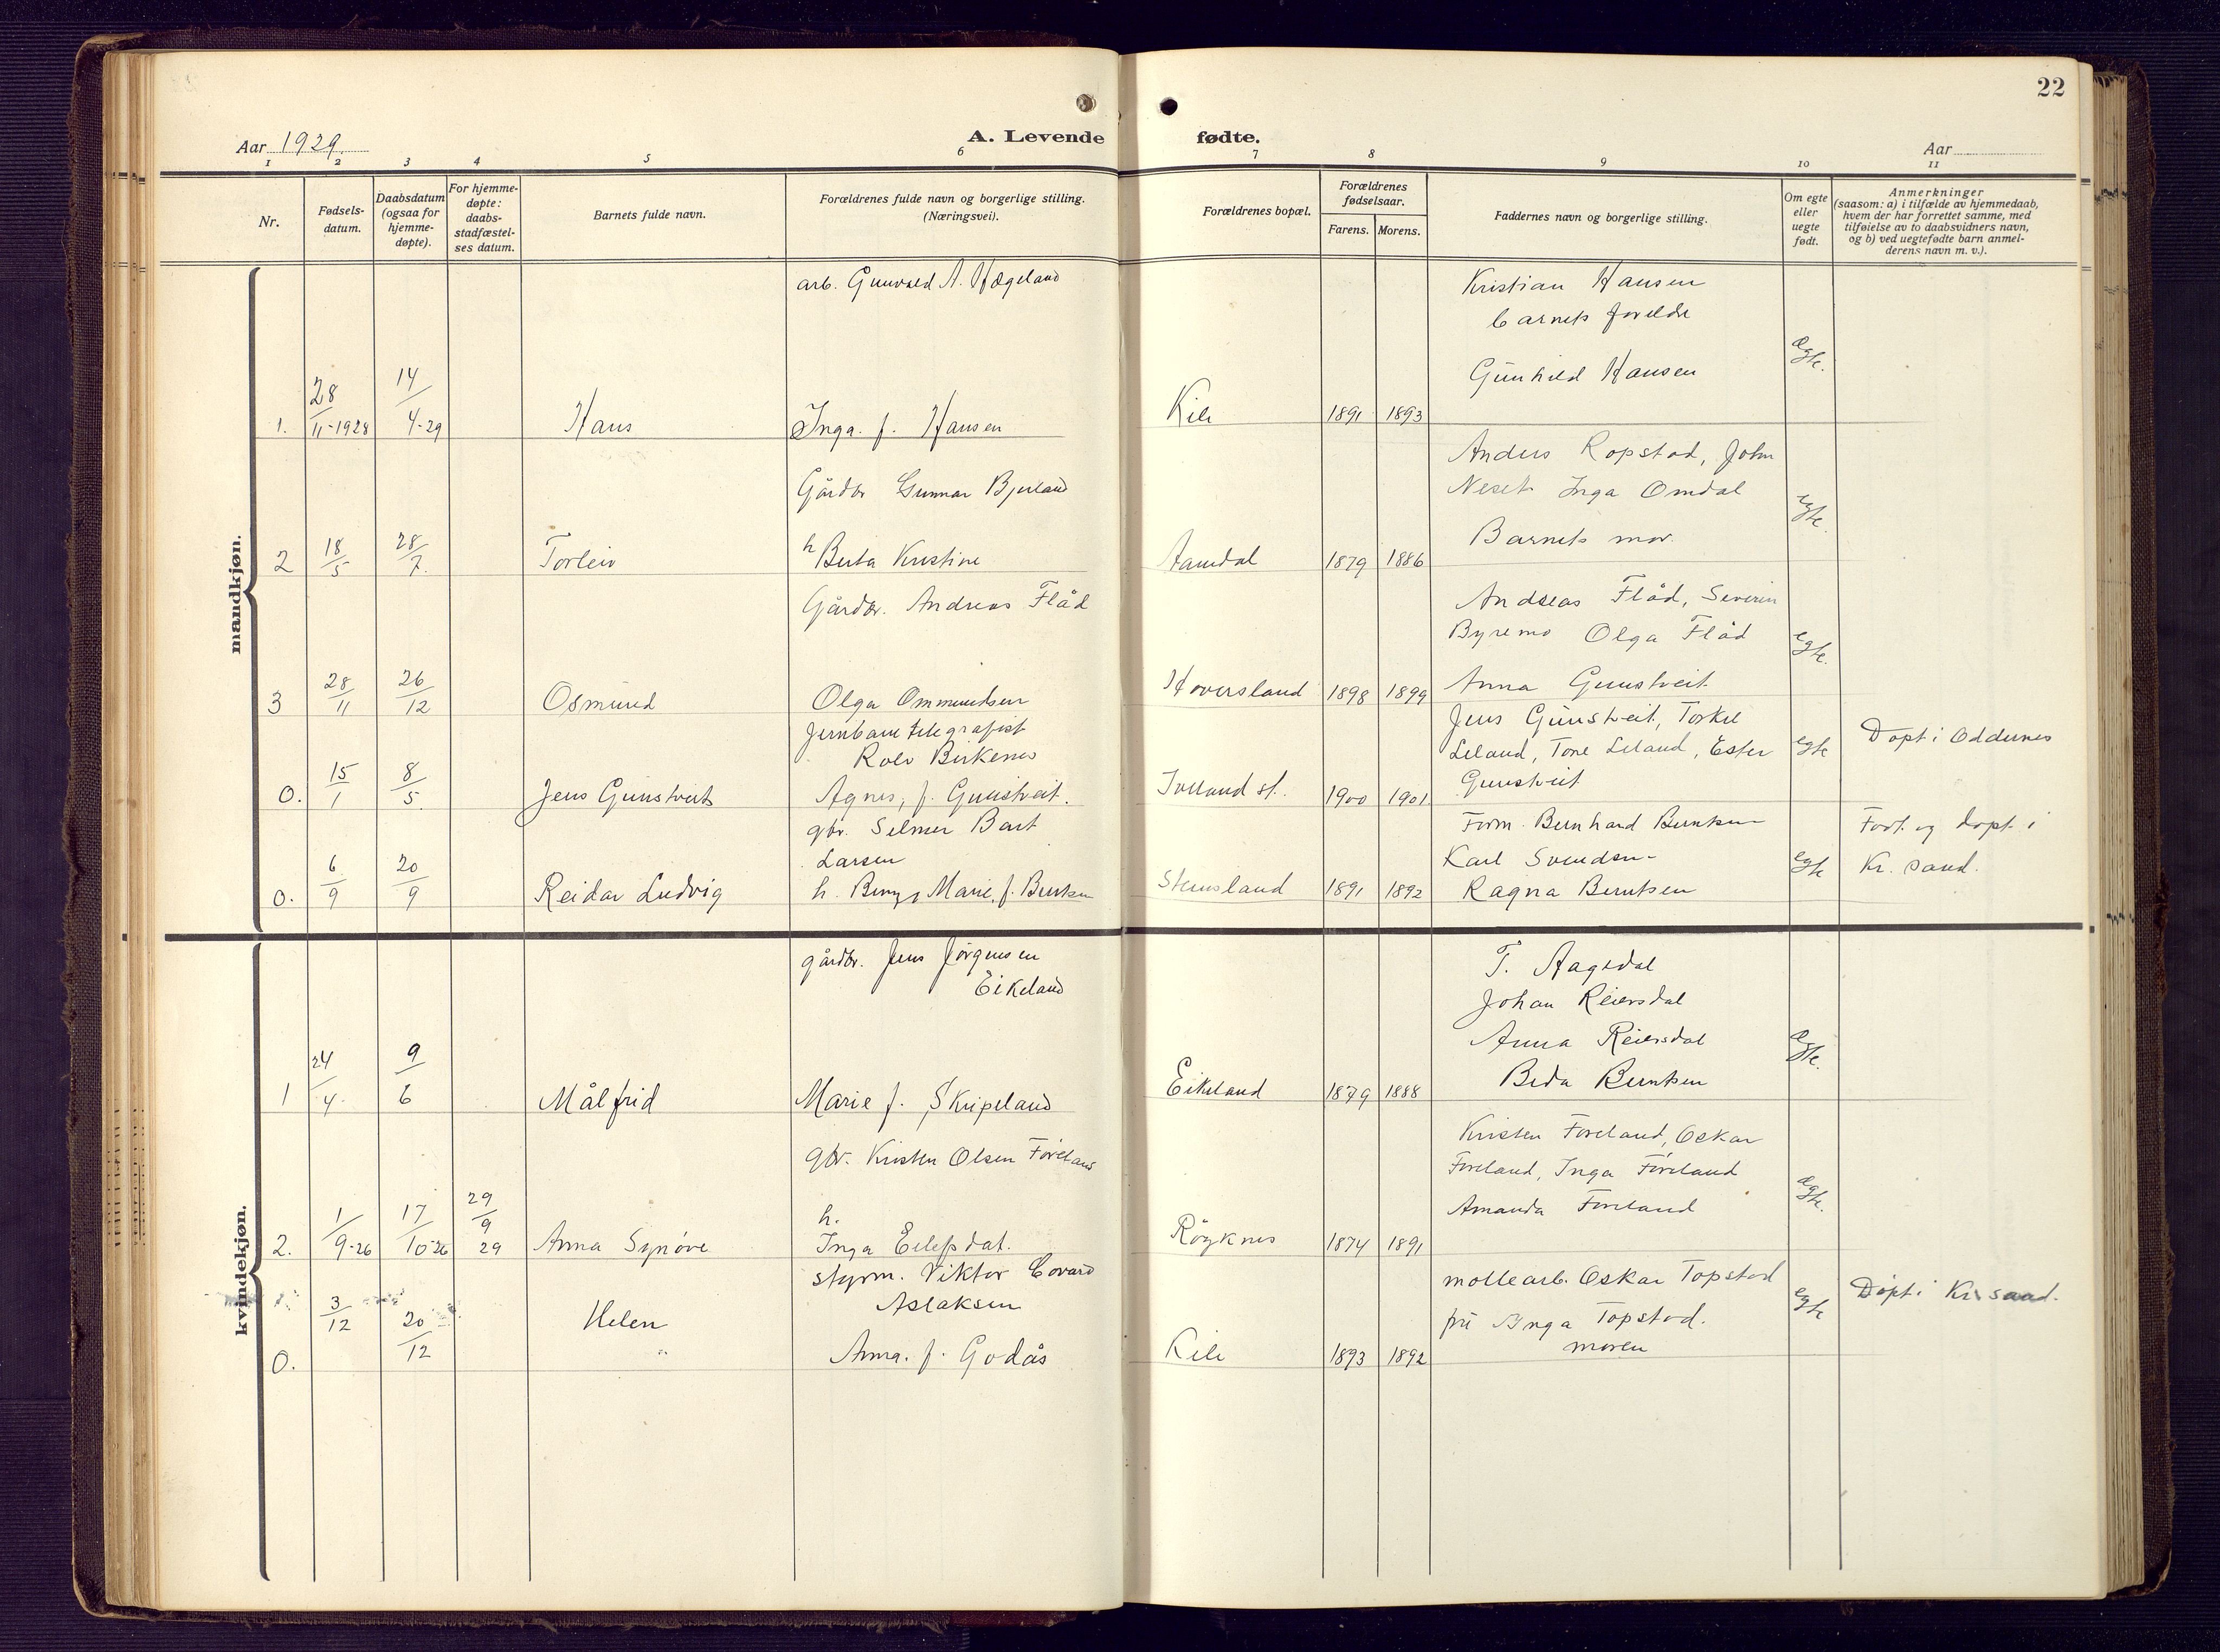 22
Aar 1929.
A. Levende fødte.
Aar
1 2 3 4 5 6 7 8 9 10 11
Nr.
Fødsels-
datum.
Daabsdatum
(ogsaa for
hjemme-
døpte).
For hjemme-
døpte:
daabs-
stadfæstel-
ses datum.
Barnets fulde navn.
Forældrenes fulde navn og borgerlige stilling.
(Næringsvei).
Forældrenes bopæl.
Forældrenes
fødselsaar.
Farens. Morens.
Faddernes navn og borgerlige stilling.
Om egte
eller
uegte
født.
Anmerkninger
(saasom: a) i tilfælde av hjemmedaab,
hvem der har forrettet samme, med
tilføielse av to daabsvidners navn,
og b) ved uegtefødte barn anmel-
derens navn m. v.).
mandkjøn.
1. 28/11-1928 14/4-29 Hans
arb. Gunvald A. Hægeland
Inga. f. Hansen
Kile 1891 1893
Kristian Hansen
barnets foreldre
Gunhild Hansen
ægte.
2 18/5 28/7. Torleiv
Gårdbr Gunnar Bjerland
h Berta Kristine
Aamdal 1879 1886
Anders Ropstad, John
Neset Inga Omdal
Barnets mor.
egte.
3 28/11 26/12 Osmund
Gårdbr. Andreas Flåd
Olga Ommundsen
Hoversland 1898 1899
Andreas Flåd, Severin
Byremo Olga Flåd
Anna Gunstveit
egte.
0. 15/1 8/5. Jens Gunstveit
Jernbanetelegrafist
Rolv Birkenes
Agnes, f. Gunstveit.
Iveland st. 1900 1901
Jens Gunstveit, Torkel
Leland, Tone Leland, Ester
Gunstveit
egte
Døpt i Oddernes
0. 6/9 20/9 Reidar Ludvig
gbr. Selmer Bart
Larsen
h. Marie, f. Berntsen
Stensland 1891 1892
Form. Bernhard Berntsen
Karl Svendsen
Ragna Berntsen
egte
Født og døpt i
Kr. sand.
kvindekjøn.
1 24/4 9/6 Målfrid
gårdbr. Jens Jørgensen
Eikeland
Marie f. Skripeland
Eikeland 1879 1888
T. Aagedal
Johan Reiersdal
Anna Reiersdal
Beda Berntsen
ægte.
2. 1/9-26 17/10-26 29/9 29 Anna Synøve
gbr. Kristen Olsen Føreland
h.
Inga Eilefsdat.
Røyknes 1874 1891
Kristen Føreland, Oskar
Føreland, Inga Føreland
Amanda Føreland
ægte.
0. 3/12 20/12 Helen
styrm. Viktor Edvard
Aslaksen
Anna. f. Godås
Kile 1893 1892
møllearb. Oskar Topstad
frú Inga Topstad.
moren
egte
Døpt i Kr. sand.